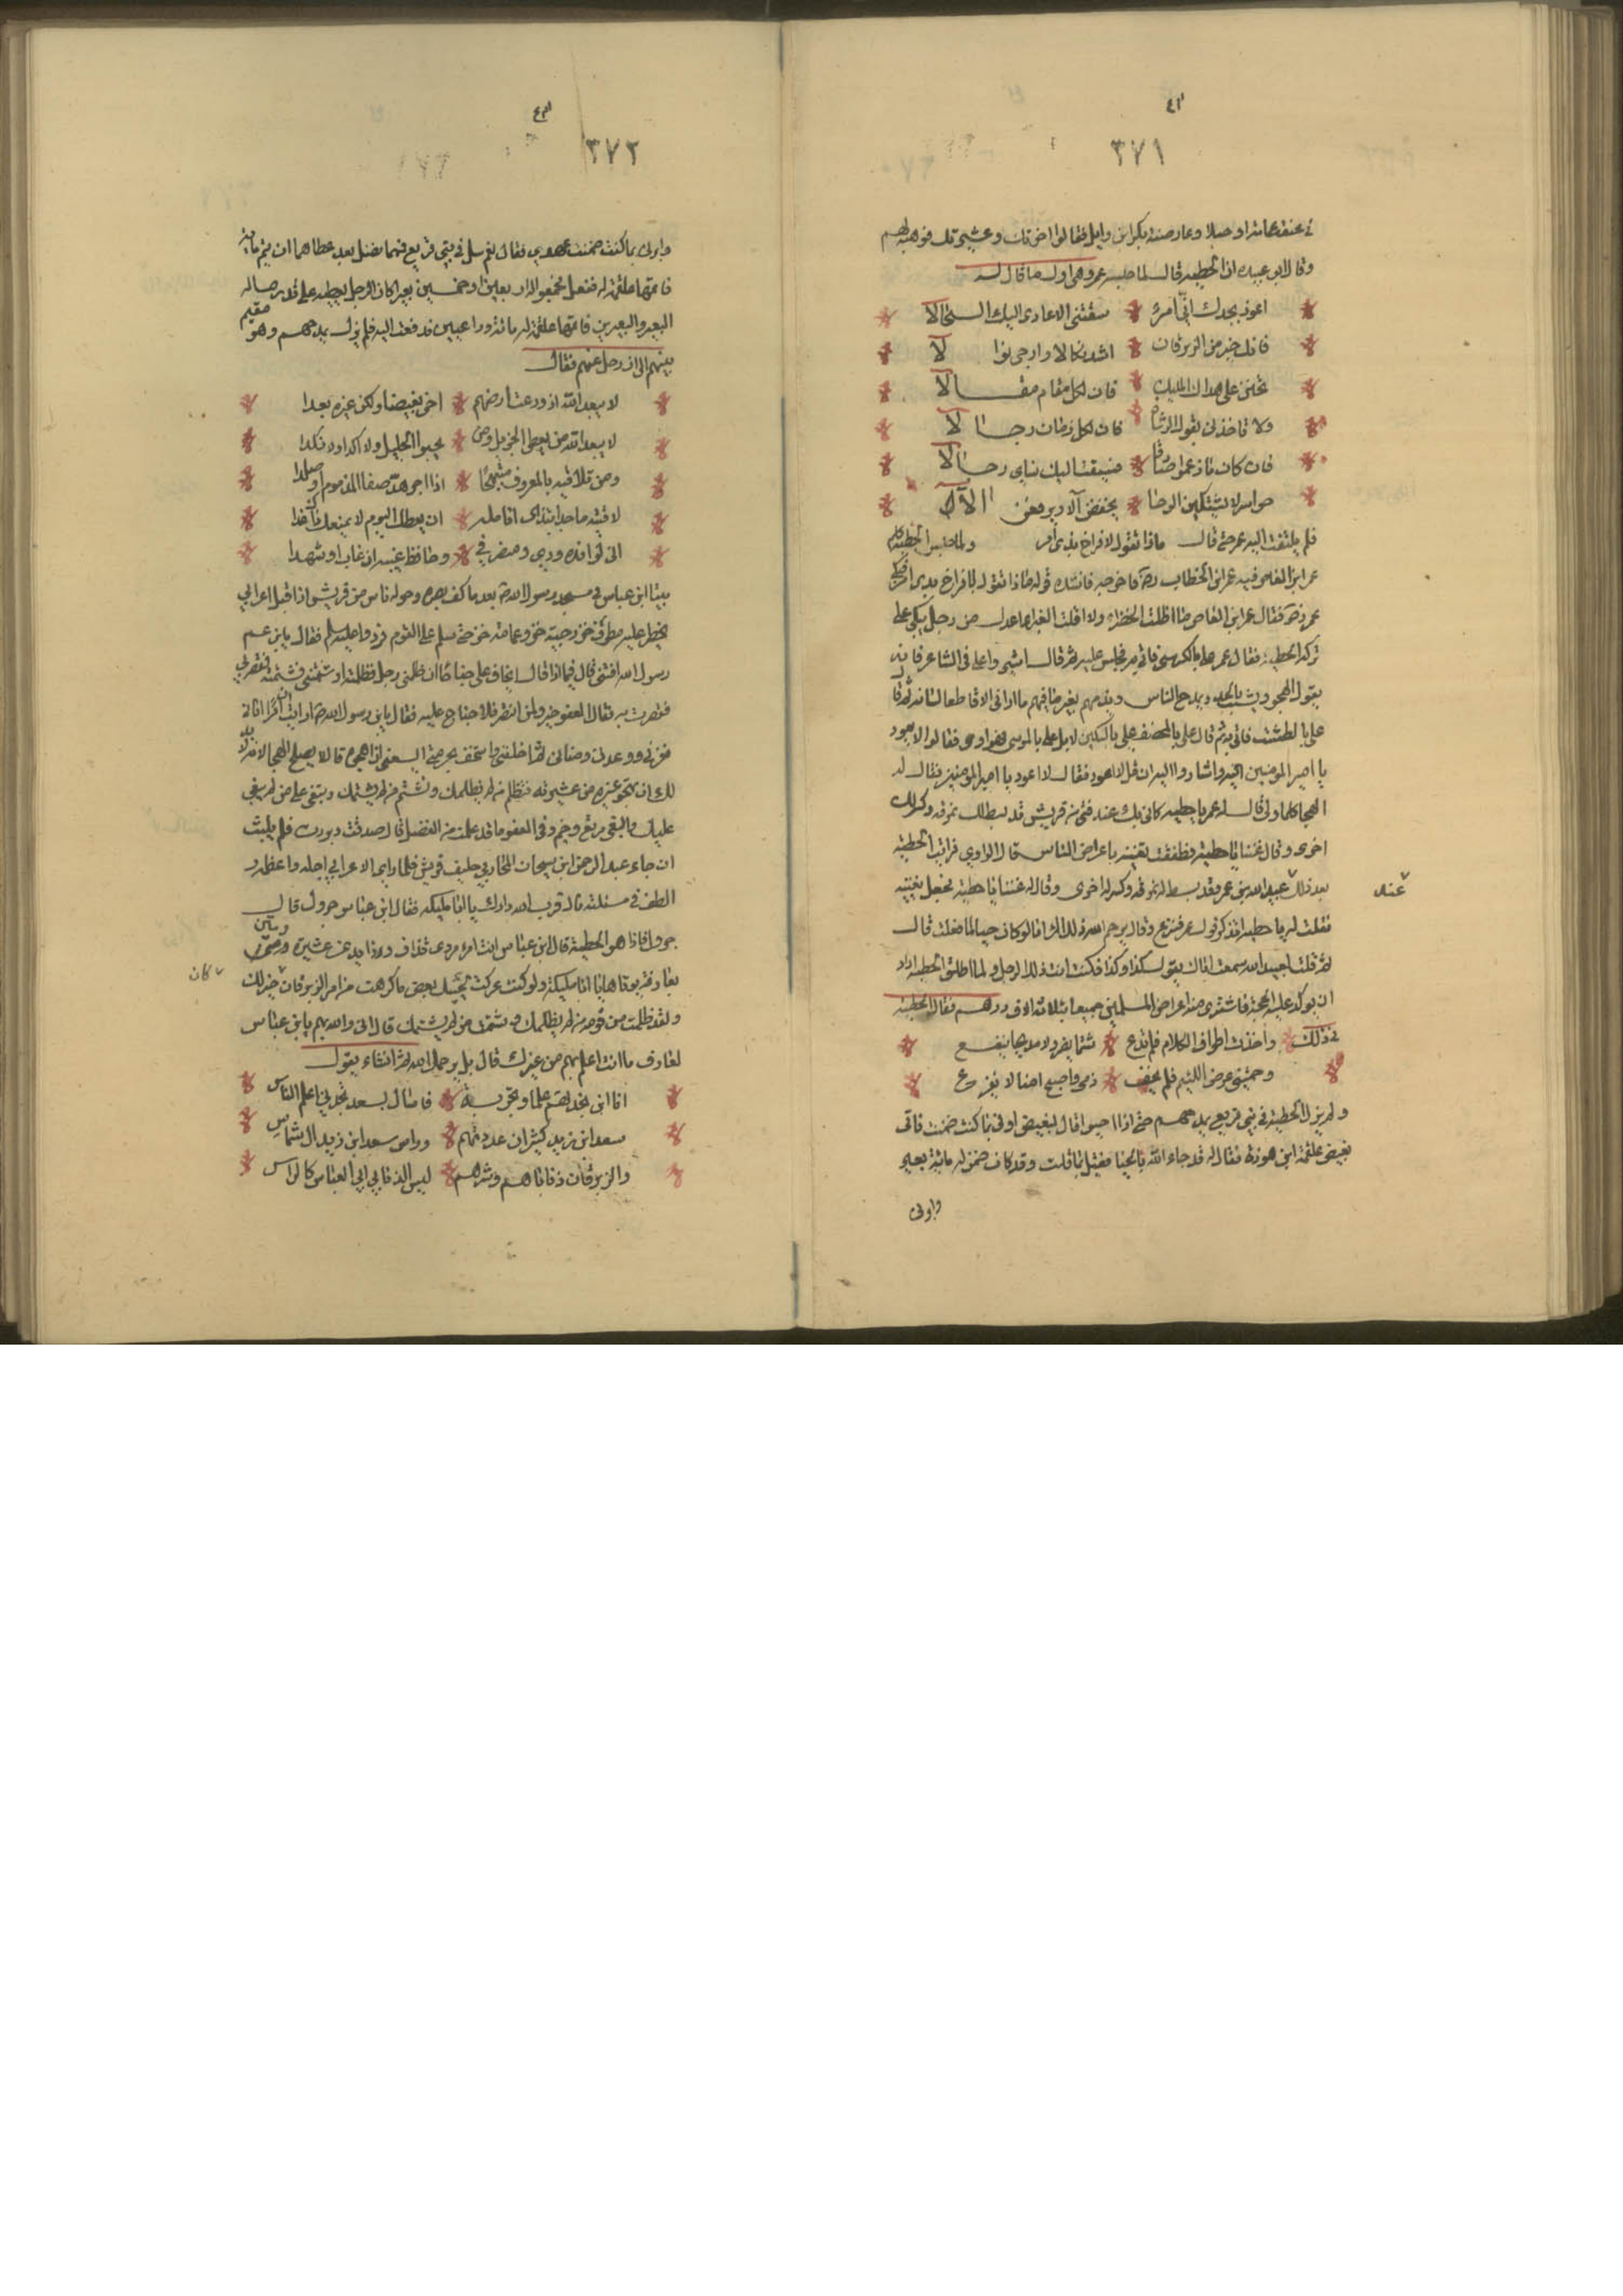 ٣٧١
في عنقه عمامة او حبلا وعارضته بكر ابن وايل فقالوا اخوتك وعشيرتك فوهبه لهم
وقال ابو عبيده ان الحطيه قال لما حبسه عمر وهي اول ما قال له
اعوذ بجدك اني امرئ * سقتني الاعادي اليك السجالا
فانك خير من الزبرقان * اشد نكالا وارجى نوالا
تحنن علي هداك المليك * فان لكل مقام مقالا
ولا تاخذني بقول الوشاه * فان لكل زمان رجالا
فان كان ما زعموا صادقا * فسيقت اليك نساى رجالا
حواسر لا يشتكين الوجا * يخفضن آلا ويرفعن الآلا
فلم يلتفت اليه عمر حتى قال ماذا تقول لافراخ بذى أمر ولما حبس الحطيئه كلم
عمر ابن العاص فيه عمر ابن الخطاب رضه فاخرجه فانشده قوله ماذا تقول لافراخ بذى امر فبكى
عمر رضه فقال عمر ابن العاص ما اظلت الخضراء ولا اقلت الغبرا اعدل من رجل يبكى على
تركه الحطيه فقال عمر علي بالكرسى فاتى به فجلس عليه ثم قال اشيروا علي في الشاعر فانه
يقول الهجو ويشبب بالحرم ويمدح الناس ويذمهم بغير ما فيهم ما اراني الا قاطعا لسانه ثم قال
علي بالطشت فاتي به ثم قال علي بالمخصف علي بالسكين لا بل علي بالموسى فهو اوحى فقالوا لا يعود
يا امير المومنين اليه واشاروا اليه ان قل لا اعود فقال لا اعود يا امير المومنين فقال له
النجا فلما ولى قال له عمر يا حطيه كاني بك عند فتى من قريش قد بسط لك نمرقه وكسر لك
اخرى وقال غننا يا حطيه فطفقت تغنيه باعراض الناس قال الراوي فرايت الحطيه
بعد ذلك عبيد الله بن عمر وقد بسط له نمرقه وكسر له اخرى وقال له غننا يا حطيه فجعل يغنيه
عند
فقلت له يا حطيه اتذكر قول عمر ففزع وقال يرحم الله ذلك المرء اما لو كان حيا لما فعلت قال
ثم قلت لعبيد الله سمعت اباك يقول كذا وكذا فكنت انت ذلك الرجل ولما اطلق الحطيه اراد
ان يوكد عليه الحجة فاشترى منه اعراض المسلمين جميعا بثلاثة الاف درهم فقال الحطيه
في ذلك * واخذت اطراف الكلام فلم تدع * شتما يضر ولا مديحا ينفع
وحميتني عرض اللئيم فلم يخف * ذمى واصبح امنا لا يفزع
ولم يزل الحطيه في بني قريع يمدحهم حتى اذا احيوا قال لبغيض اوفى بما كنت ضمنت فاتى
بغيض علقمة ابن هوذة فقال له قد جاء الله بالحيا ففي لي بما قلت وقد كان ضمن له مائة بعير
واوفى
٣٧٢
واوفى بما كنت ضمنت عهدى فقال نعم سل في بني قريع فمهما فضل بعد عطاهما ان يتم مائة
فاتمها علقمة له ففعل فجمعوا له اربعين او خمسين بعيرا كان الرجل يعطيه على قدر ماله
البعير والبعيرين فاتمها علقمة له مائة وراعيين فدفعت اليه فلم يزل يمدحهم وهو مقيم
بينهم الى ان رحل عنهم فقال
لا يبعد الله اذ ودعت ارضهم * اخي بغيضا ولكن غيره بعدا
لا يبعد الله من يعطى الجزيل ومن * يحبوا الجليل ولا اكدا ولا نكدا
ومن تلاقيه بالمعروف مبتهجا * اذا اجرهد صفا المذموم او صلدا
لاقيته ماجدا تندى انامله * ان يعطك اليوم لا يمنعك ذا غدا
انى لرافده ودى ومنصرني * وحافظ غيبه ان غاب او شهدا
بينا ابن عباس فى مسجد رسول الله صه بعد ما كف بصره وحوله ناس من قريش اذا قبل اعرابي
يخطر عليه مطرف خز وجبة خز وعمامة خز حتى سلم على القوم فردوا عليه السلم فقال يابن عم
رسول الله افتني قال فيماذا قال اتخاف علي جناحا ان ظلمني رجل فظلمته او شتمنى فشتمته وقصر بي
فقصرت به فقال العفو خير ومن انتصر فلا جناح عليه فقال يابن رسول الله صه ارايت ان امرا اتانى
فغرني ووعدنى ومناني ثم اخلفني واستخف بحرمتي اليسعنى ان اهجوه قال لا يصلح الهجا لانه لا بد
لك ان تهجو غيره من عشيرته فتظلم من لم يظلمك وتشتم من لم يشتمك وتبغى على من لم يبغى
عليك والبغي مرتع وخيم وفى العفو ما قد علمت من الفضل قال صدقت وبررت فلم يلبث
ان جاء عبد الرحمن ابن سيحان المحاربي حليف قريش فلما راى الاعرابي اجله واعظمه و
الطف في مسئلته وقال قرب الله دارك يا ابا مليكه فقال ابن عباس جرول قال
جرول فاذا هو الحطيه قال ابن عباس انت امرء مردى قذاف وذايد عن عشيرة ومثنى
بعارفة يوتاها يا ابا مليكه ولو كنت عركت بجنبك بعض ما كرهت من امر الزبرقان خير لك
كان
ولقد ظلمت من قومه من لم يظلمك وشتمت من لم يشتمك قال اني والله بهم يابن عباس
لعارف ما انت اعلم بهم من غيرك قال بلى يرحمك الله ثم انشاء يقول
انا ابن بجدتهم علما وتجربة * فاسال بسعد تجدني اعلم الناس
سعد ابن زيد كثير ان عددتهم * وراس سعد ابن زيد ال شماس
والزبرقان ذناباهم وشرهم * ليس الذنابي ابي العباس كالراس